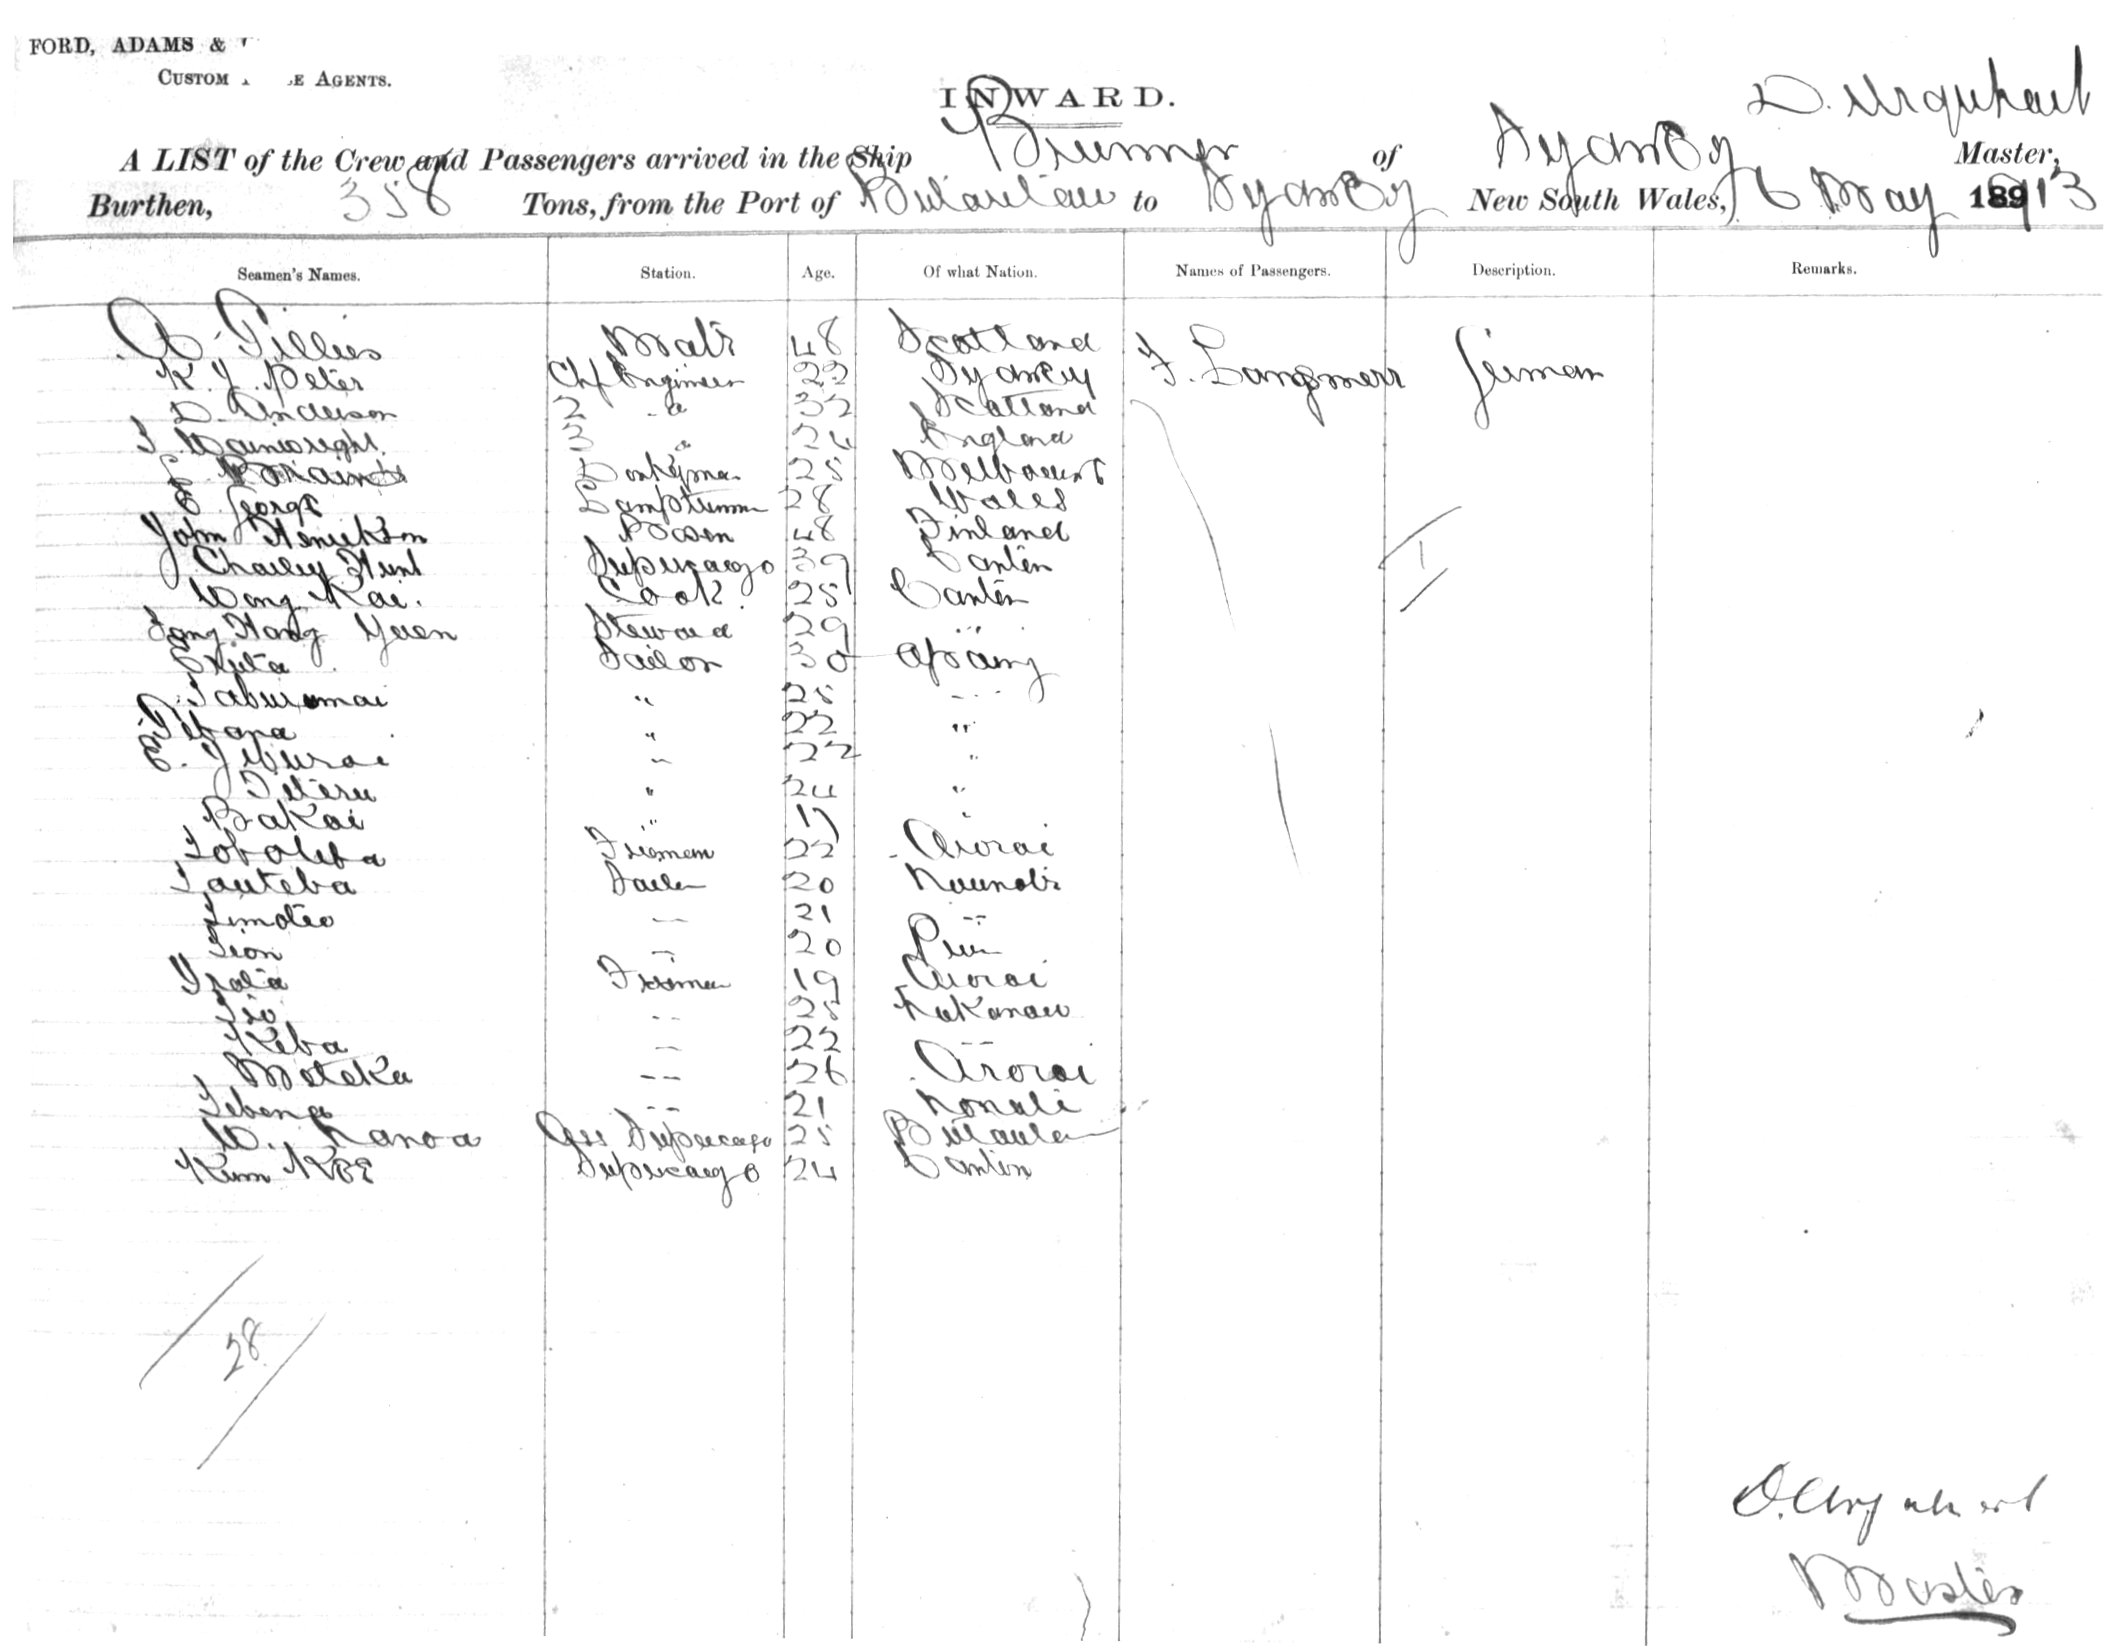 FORD, ADAMS &
CUSTOM E AGENTS.
INWARD.
D. Urquhart
A LIST of the Crew and Passengers arrived in the Ship Brunner of Sydney Master,
Burthen, 358 Tons, from the Port of Butaritari to Sydney New South Wales, 6 May 1913
Seamen's Names. Station. Age. Of what Nation. Names of Passengers. Description. Remarks.
A Gillies Mate 48 Scotland F. Langmerr German
K. J. Peter Chf Engineer 22 Sydney
D. Anderson 2 " 32 Scotland
J Wainwright 3 " 24 England
Donkeyman 25 Melbourne
E George Lamptrimmer 28 Wales
John Henrikson Bosen 48 Finland
Charley Hunt Supercargo 39 Canton
Wong Kai. Cook. 25 Canton
Fong Hang Yuen Steward 29 "
Ekieta Sailor 30 Apaing
Taburimai " 25 "
Tibana " 22 "
E. " 22 "
Teteru " 24 "
Bakai " 17 "
Toboliba Fireman 22 Arorai
Tauteba Sailor 20 Nounoti
Timoteo " 21 "
Tion " 20 Peru
Irata Fireman 19 Arorai
Tio " 25 Kukanau
Kiba " 22 "
Moteka " 26 Arorai
Tibena " 21 Nonuti
W. Kanoa Ass Supercargo 25 Butaritari
Kum Kee Supercargo 24 Canton
1
28
D. Urquhart
Master